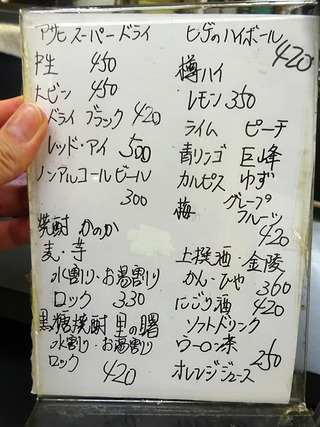 アサヒ スーパードライ
中生 450
大ビン 450
ドライ ブラック 420
レッド・アイ 500
ノンアルコールビール
300
焼酎 かのか
麦・芋
水割り・お湯割り
ロック 330
黒糖焼酎 里の曙
水割り・お湯割り
ロック 420
ヒゲのハイボール
420
樽ハイ
レモン 350
ライム ピーチ
青リンゴ 巨峰
カルピス ゆず
梅 グレープ
フルーツ
420
上撰酒・金陵
かん・ひや 360
にごり酒 420
ソフトドリンク
ウーロン茶
250
オレンジジュース